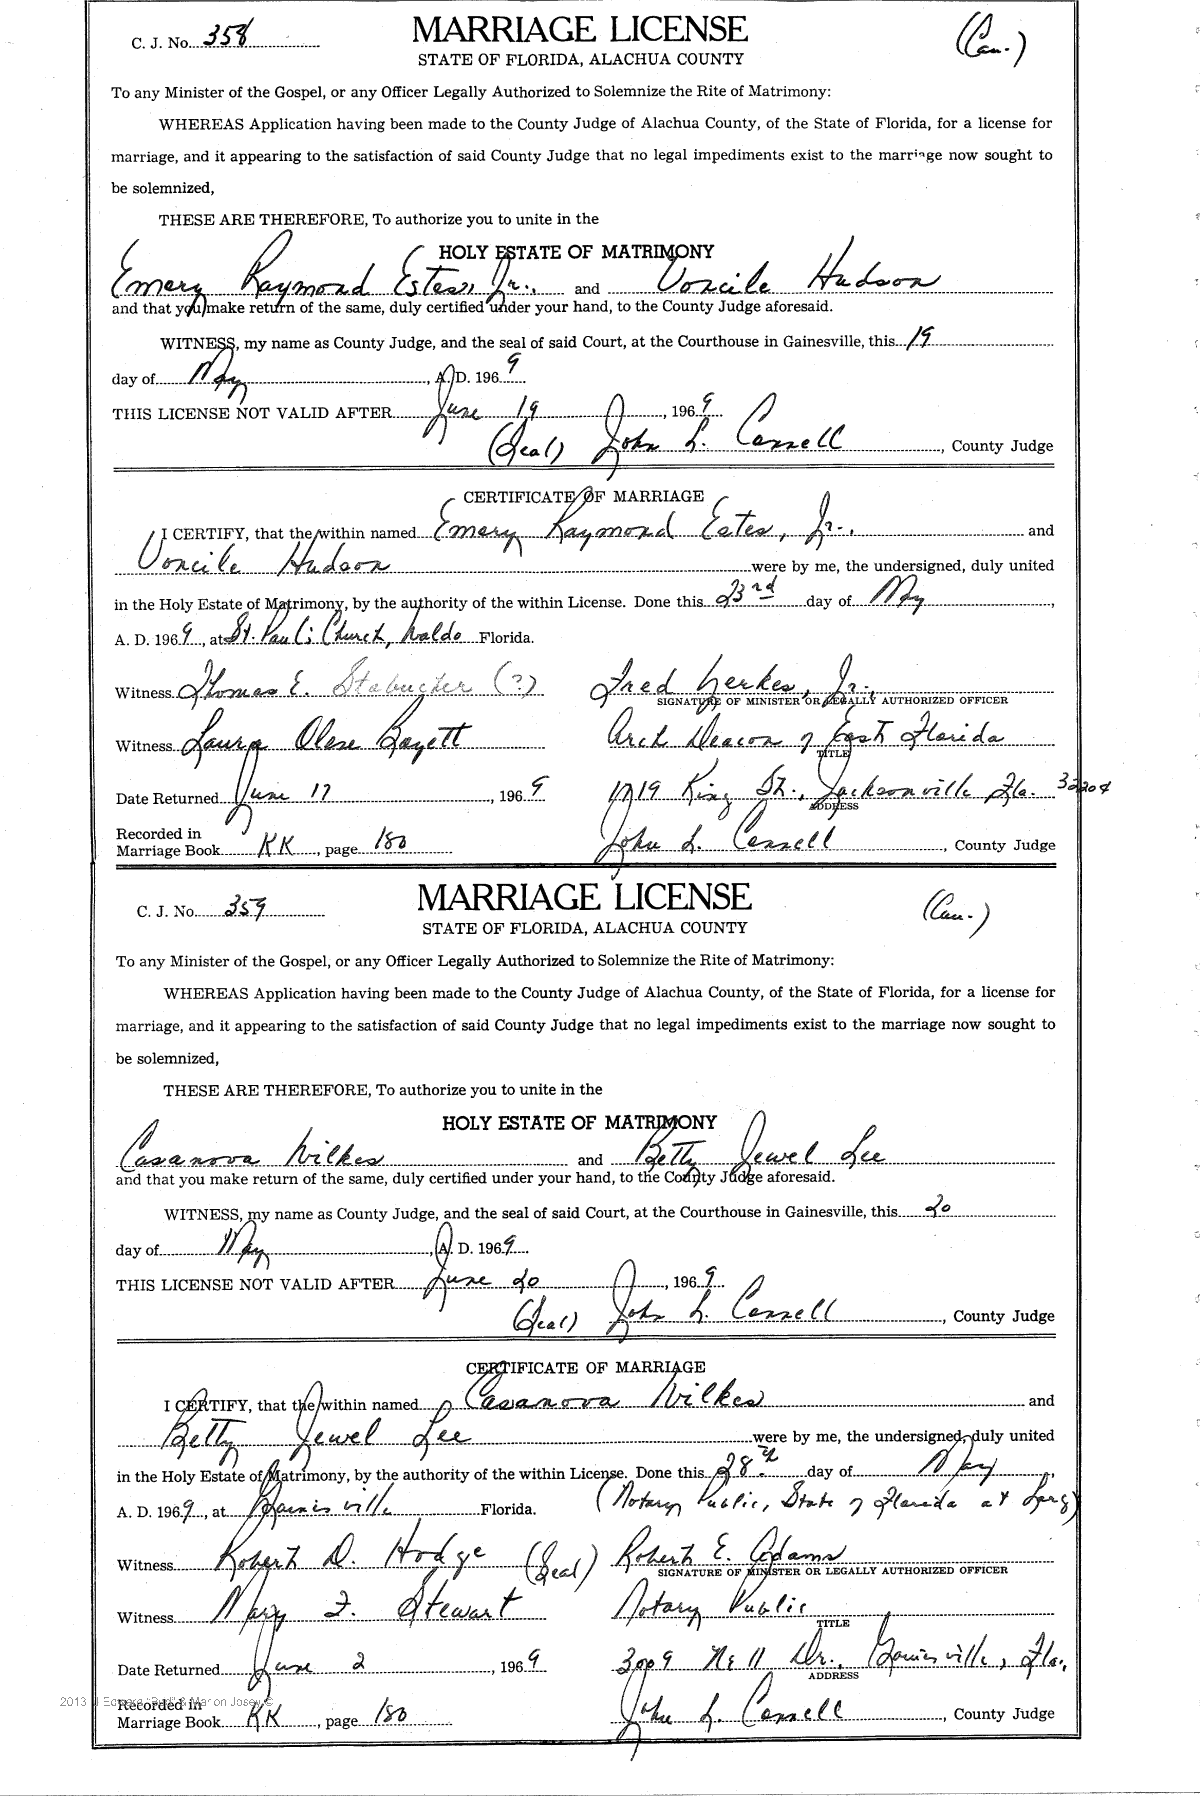 C. J. No. 358
MARRIAGE LICENSE
(Cau.)
STATE OF FLORIDA, ALACHUA COUNTY
To any Minister of the Gospel, or any Officer Legally Authorized to Solemnize the Rite of Matrimony:
WHEREAS Application having been made to the County Judge of Alachua County, of the State of Florida, for a license for
marriage, and it appearing to the satisfaction of said County Judge that no legal impediments exist to the marriage now sought to
be solemnized,
THESE ARE THEREFORE, To authorize you to unite in the
HOLY ESTATE OF MATRIMONY
Emery Raymond Estes, Jr., and Voncile Hudson
and that you make return of the same, duly certified under your hand, to the County Judge aforesaid.
WITNESS, my name as County Judge, and the seal of said Court, at the Courthouse in Gainesville, this 19
day of May, A. D. 1969
THIS LICENSE NOT VALID AFTER June 19, 1969
(Seal) John L. Connell, County Judge
CERTIFICATE OF MARRIAGE
I CERTIFY, that the within named Emery Raymond Estes, Jr., and
Voncile Hudson were by me, the undersigned, duly united
in the Holy Estate of Matrimony, by the authority of the within License. Done this 23rd day of May,
A. D. 1969, at St. Paul's Church, Waldo Florida.
Witness Thomas E. (?) Fred Yerkes, Jr.,
SIGNATURE OF MINISTER OR LEGALLY AUTHORIZED OFFICER
Witness Laura Arch Deacon of East Florida
TITLE
Date Returned June 17, 1969 1719 King St., Jacksonville Fla. 32204
ADDRESS
Recorded in
Marriage Book KK, page 180 John L. Connell, County Judge
C. J. No. 359
MARRIAGE LICENSE
(Cau.)
STATE OF FLORIDA, ALACHUA COUNTY
To any Minister of the Gospel, or any Officer Legally Authorized to Solemnize the Rite of Matrimony:
WHEREAS Application having been made to the County Judge of Alachua County, of the State of Florida, for a license for
marriage, and it appearing to the satisfaction of said County Judge that no legal impediments exist to the marriage now sought to
be solemnized,
THESE ARE THEREFORE, To authorize you to unite in the
HOLY ESTATE OF MATRIMONY
Casanova Wilkes and Betty Jewel Lee
and that you make return of the same, duly certified under your hand, to the County Judge aforesaid.
WITNESS, my name as County Judge, and the seal of said Court, at the Courthouse in Gainesville, this 20
day of May, A. D. 1969
THIS LICENSE NOT VALID AFTER June 20, 1969
(Seal) John L. Connell, County Judge
CERTIFICATE OF MARRIAGE
I CERTIFY, that the within named Casanova Wilkes and
Betty Jewel Lee were by me, the undersigned, duly united
in the Holy Estate of Matrimony, by the authority of the within License. Done this 28th day of May,
A. D. 1969, at Gainesville Florida. (Notary Public, State of Florida at Large)
Witness Robert D. Hodge (Seal) Robert E. Adams
SIGNATURE OF MINISTER OR LEGALLY AUTHORIZED OFFICER
Witness Mary F. Stewart Notary Public
TITLE
Date Returned June 2, 1969 3009 NE 11 Dr., Gainesville, Fla.,
ADDRESS
Recorded in
Marriage Book KK, page 180 John L. Connell, County Judge